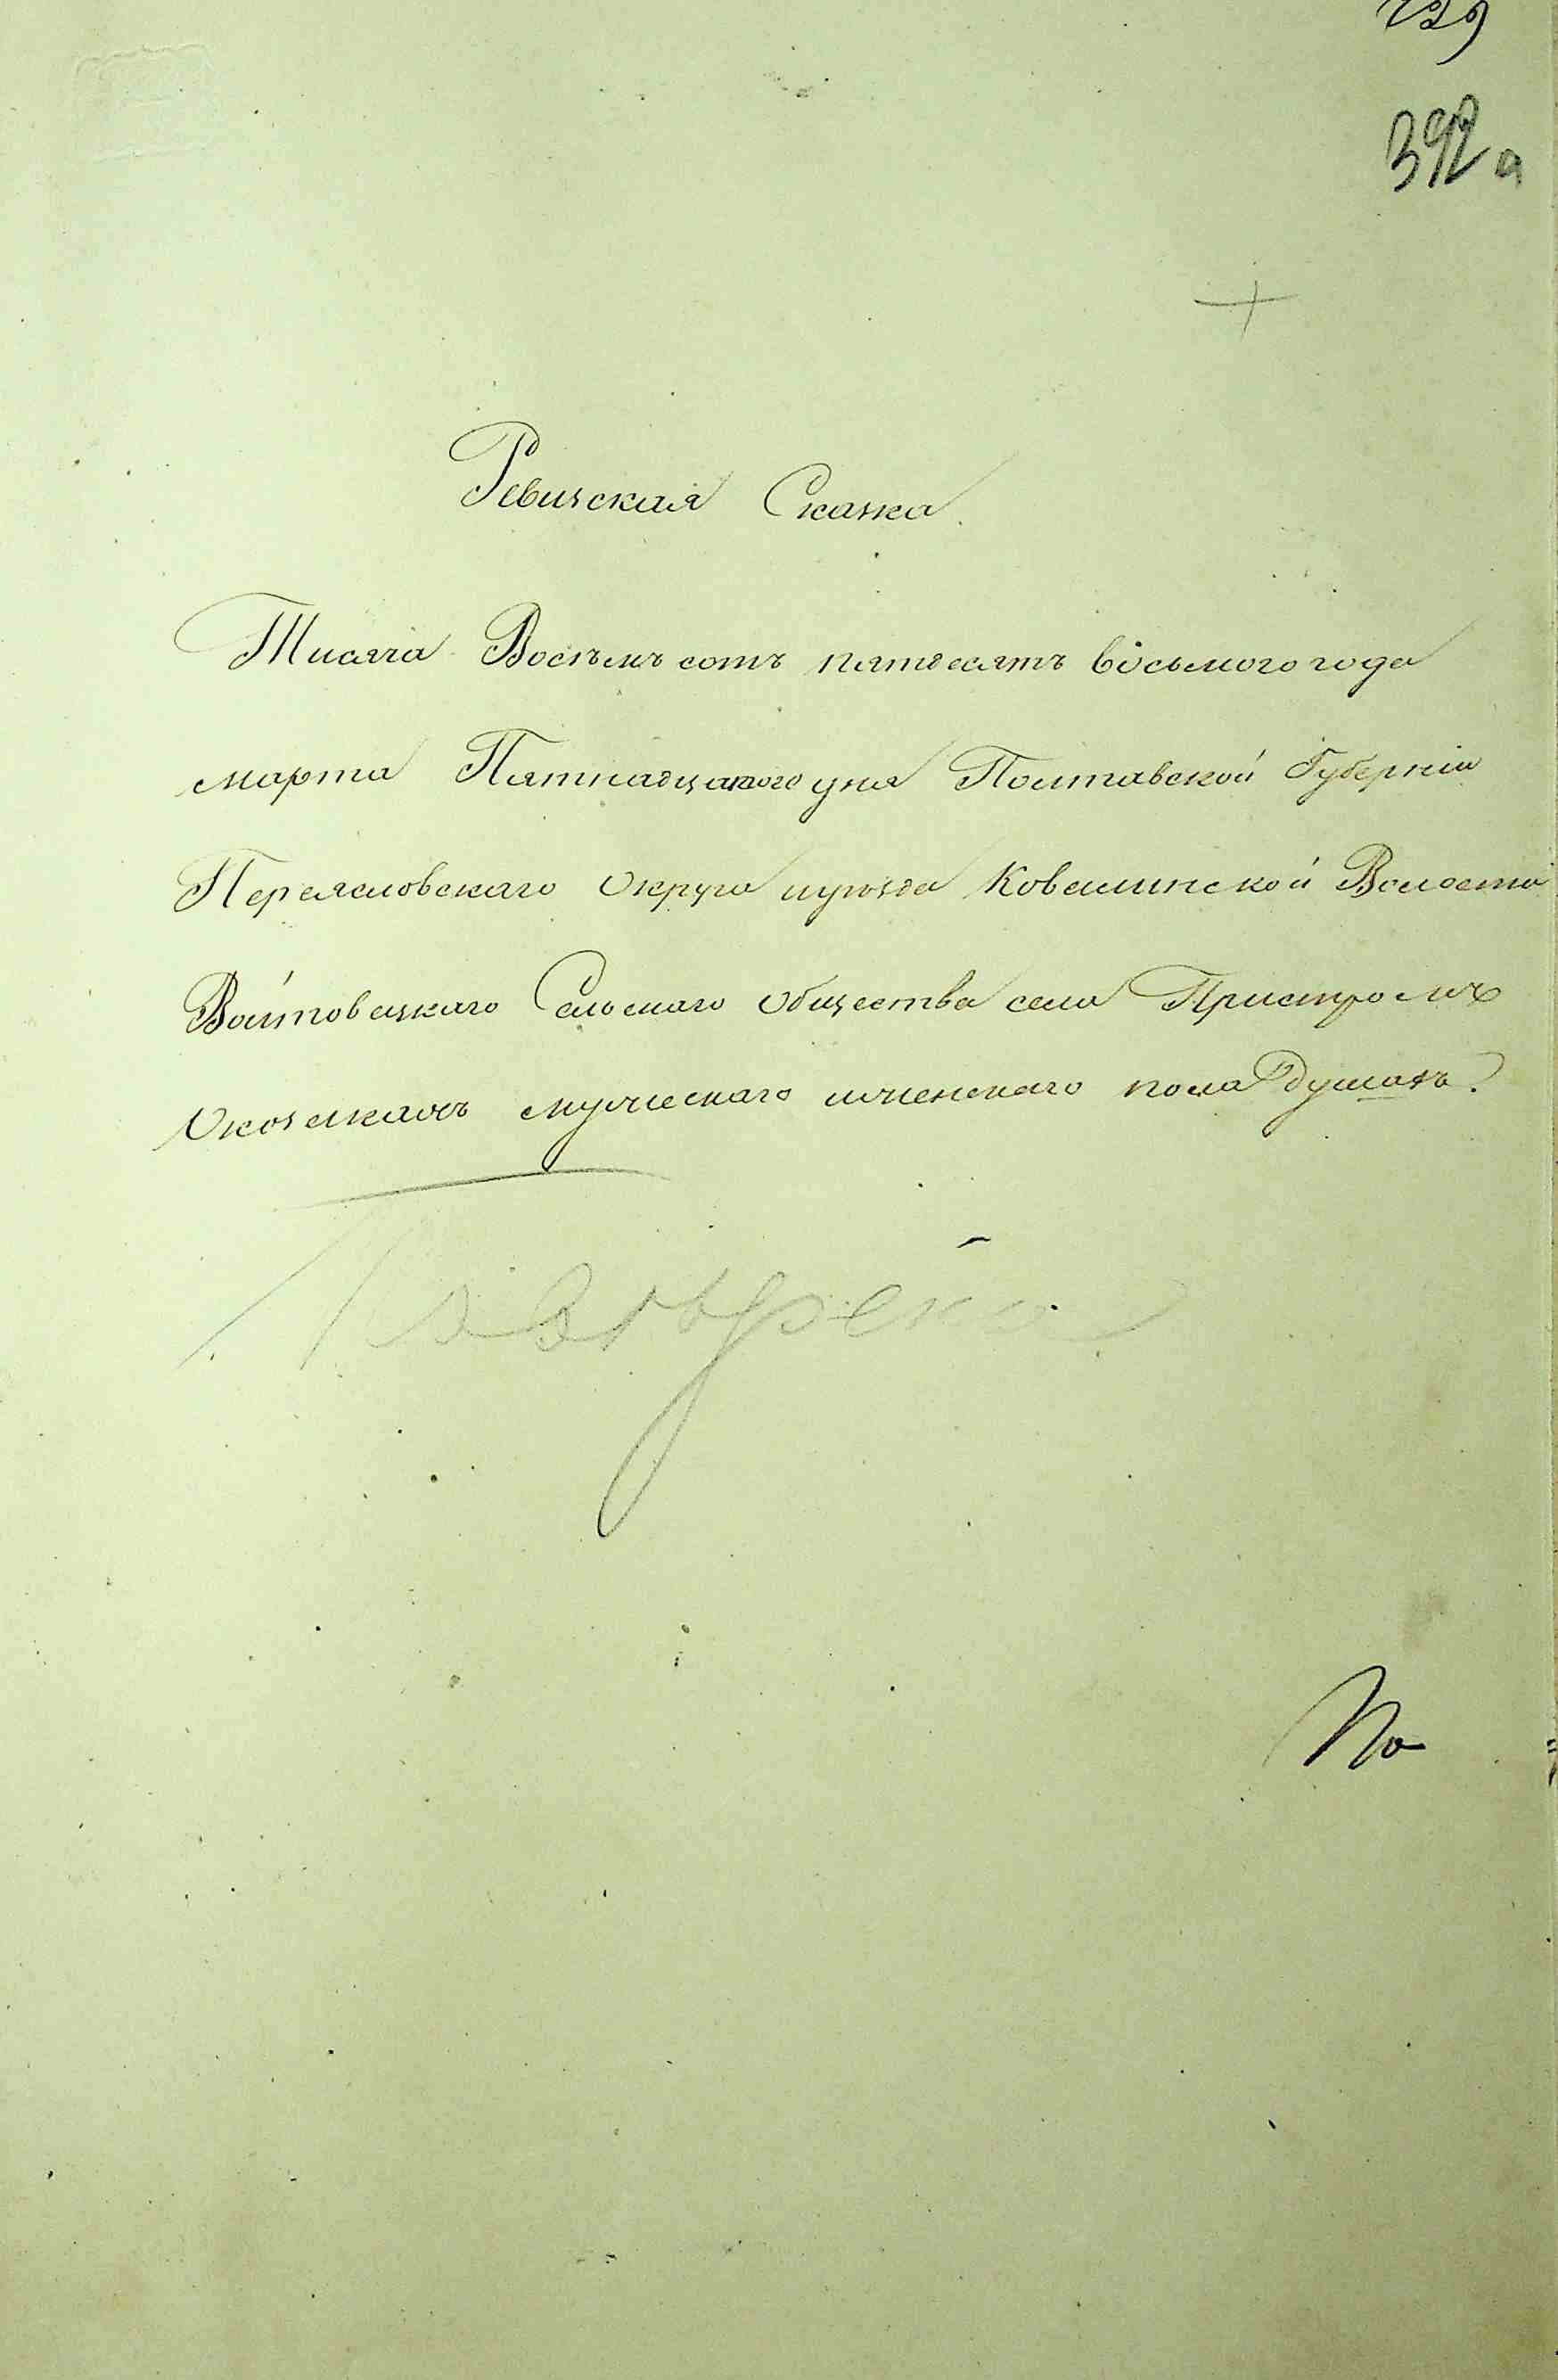 729
392 а
Ревизская Сказка
Тисяча Восемь сотъ пятдесятъ восьмого года
марта Пятнадцатого дня Полтавской Губерніи
Переясловскаго Округа иуезда Ковалинской Волости
Войтовецкаго Сельскаго Общества села Пристромъ
Окозакахъ мужескаго иженскаго пола душахъ.
Поверено
По